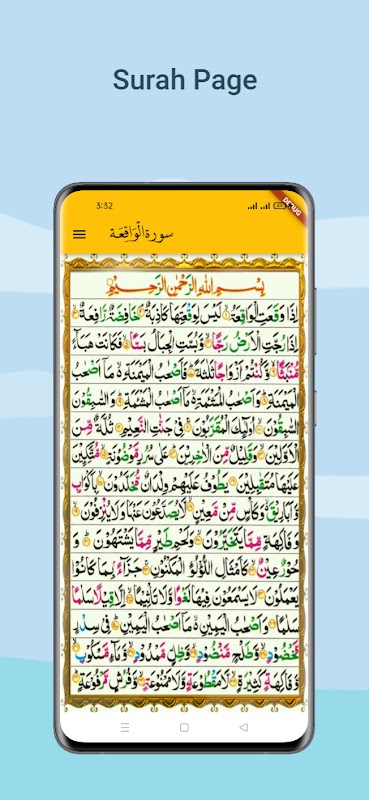 Surah Page
3:32
DEBUG
سورة الْوَاقِعَة
بِسْمِ اللهِ الرَّحْمٰنِ الرَّحِيْمِ
اِذَا وَقَعَتِ الْوَاقِعَةُ لَيْسَ لِوَقْعَتِهَا كَاذِبَةٌ خَافِضَةٌ رَّافِعَةٌ
اِذَا رُجَّتِ الْاَرْضُ رَجًّا وَّبُسَّتِ الْجِبَالُ بَسًّا فَكَانَتْ هَبَآءً
مُّنْۢبَثًّا وَّكُنْتُمْ اَزْوَاجًا ثَلٰثَةً فَاَصْحٰبُ الْمَيْمَنَةِ مَاۤ اَصْحٰبُ
الْمَيْمَنَةِ وَاَصْحٰبُ الْمَشْـَٔمَةِ مَاۤ اَصْحٰبُ الْمَشْـَٔمَةِ وَالسّٰبِقُوْنَ
السّٰبِقُوْنَ اُولٰٓئِكَ الْمُقَرَّبُوْنَ فِيْ جَنّٰتِ النَّعِيْمِ ثُلَّةٌ مِّنَ
الْاَوَّلِيْنَ وَقَلِيْلٌ مِّنَ الْاٰخِرِيْنَ عَلٰى سُرُرٍ مَّوْضُوْنَةٍ مُّتَّكِـِٕيْنَ
عَلَيْهَا مُتَقٰبِلِيْنَ يَطُوْفُ عَلَيْهِمْ وِلْدَانٌ مُّخَلَّدُوْنَ بِاَكْوَابٍ
وَّاَبَارِيْقَ وَكَاْسٍ مِّنْ مَّعِيْنٍ لَّا يُصَدَّعُوْنَ عَنْهَا وَلَا يُنْزِفُوْنَ
وَفَاكِهَةٍ مِّمَّا يَتَخَيَّرُوْنَ وَلَحْمِ طَيْرٍ مِّمَّا يَشْتَهُوْنَ وَ
حُوْرٌ عِيْنٌ كَاَمْثَالِ اللُّؤْلُؤِ الْمَكْنُوْنِ جَزَآءًۢ بِمَا كَانُوْا
يَعْمَلُوْنَ لَا يَسْمَعُوْنَ فِيْهَا لَغْوًا وَّلَا تَاْثِيْمًا اِلَّا قِيْلًا سَلٰمًا
سَلٰمًا وَاَصْحٰبُ الْيَمِيْنِ مَاۤ اَصْحٰبُ الْيَمِيْنِ فِيْ سِدْرٍ
مَّخْضُوْدٍ وَّطَلْحٍ مَّنْضُوْدٍ وَّظِلٍّ مَّمْدُوْدٍ وَّمَآءٍ مَّسْكُوْبٍ
وَّفَاكِهَةٍ كَثِيْرَةٍ لَّا مَقْطُوْعَةٍ وَّلَا مَمْنُوْعَةٍ وَّفُرُشٍ مَّرْفُوْعَةٍ